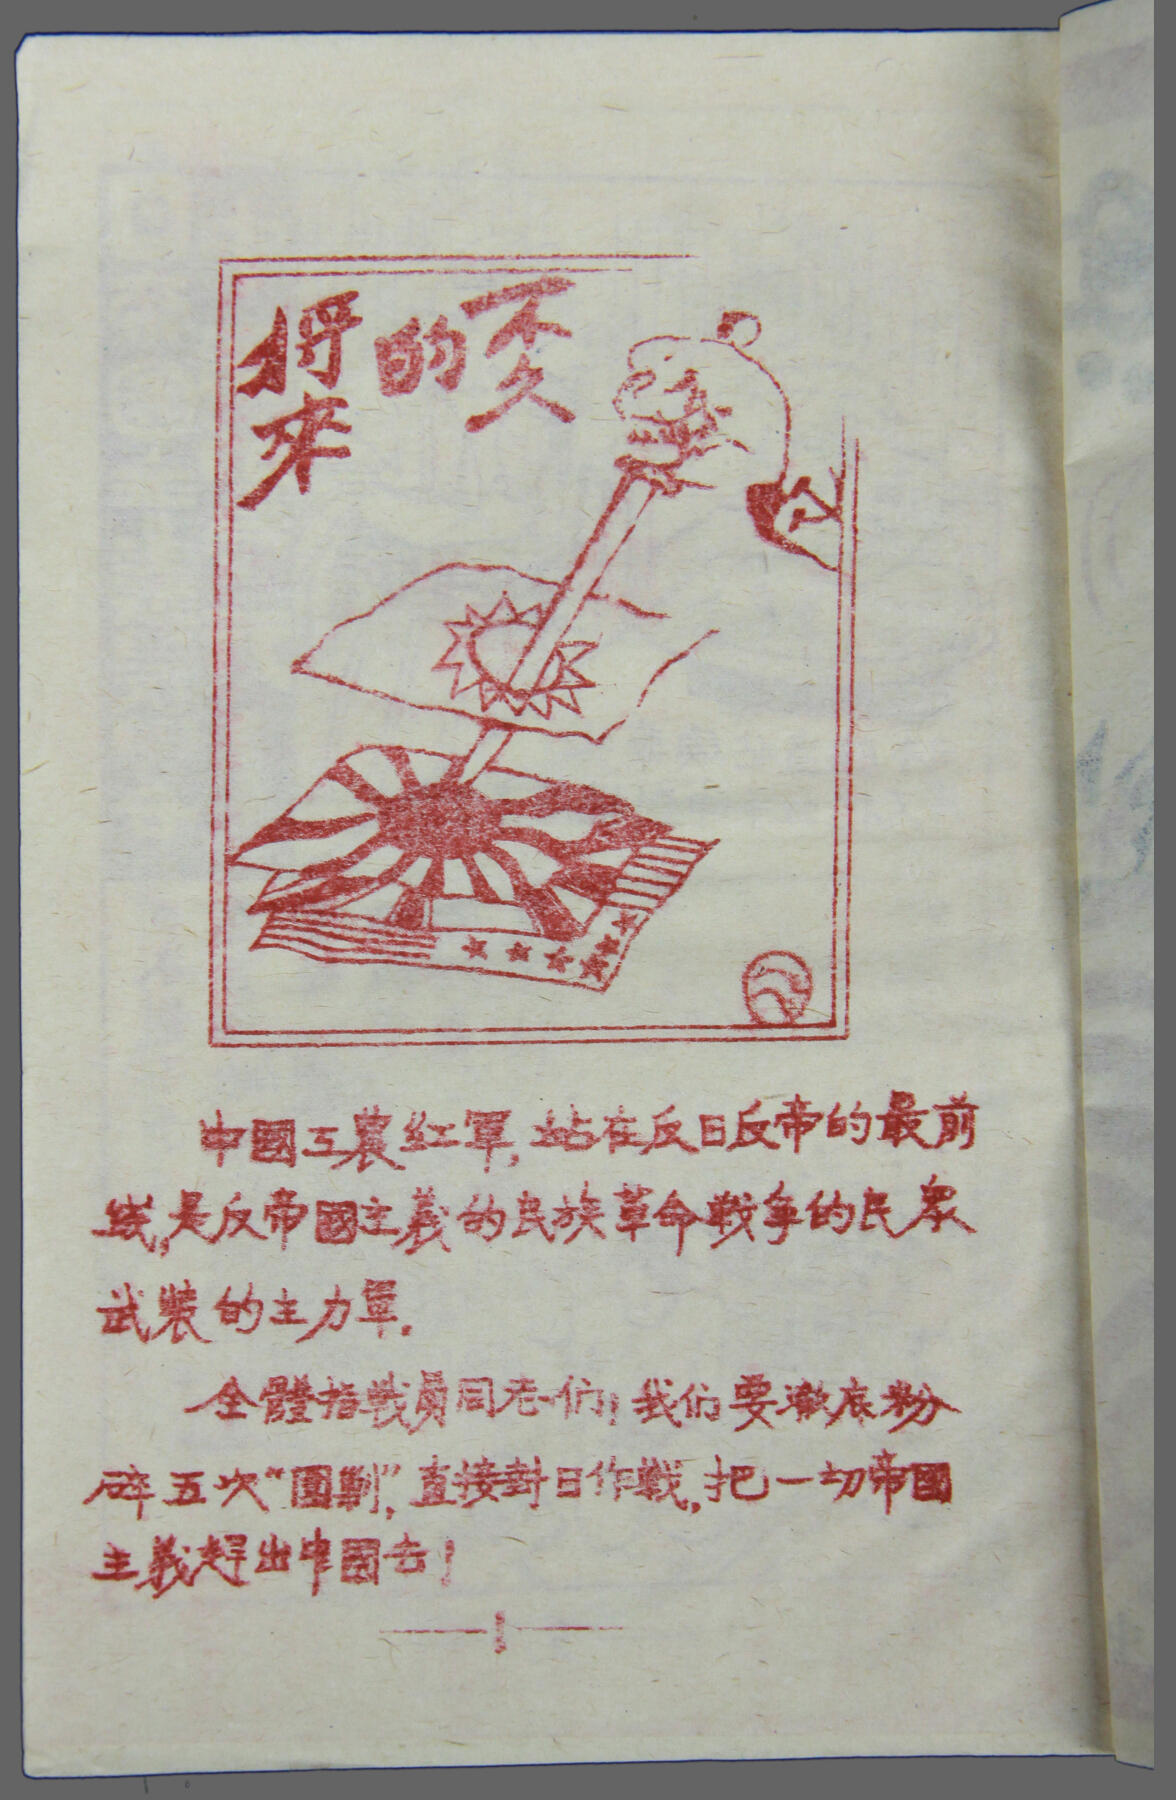 不久的將來
中國工農紅軍,站在反日反帝的最前
线,是反帝國主義的民族革命戰爭的民眾
武裝的主力軍.
全體指戰員同志们!我们要澈底粉
碎五次“圍剿”,直接對日作戰,把一切帝國
主義趕出中國去!
—1—